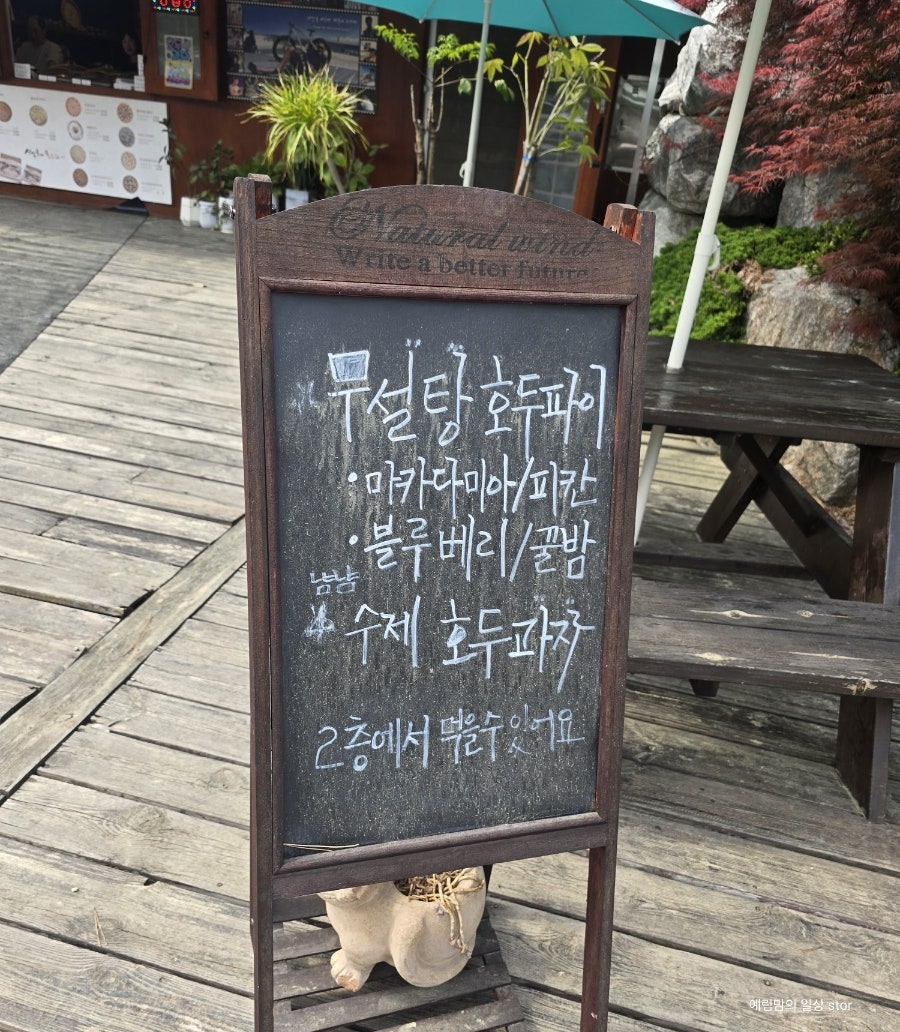 Natural wind
Write a better future
무설탕 호두파이
·마카다미아/피칸
·블루베리/꿀밤
냠냠
수제 호두과자
2층에서 먹을수있어요
예린맘의 일상 stor...